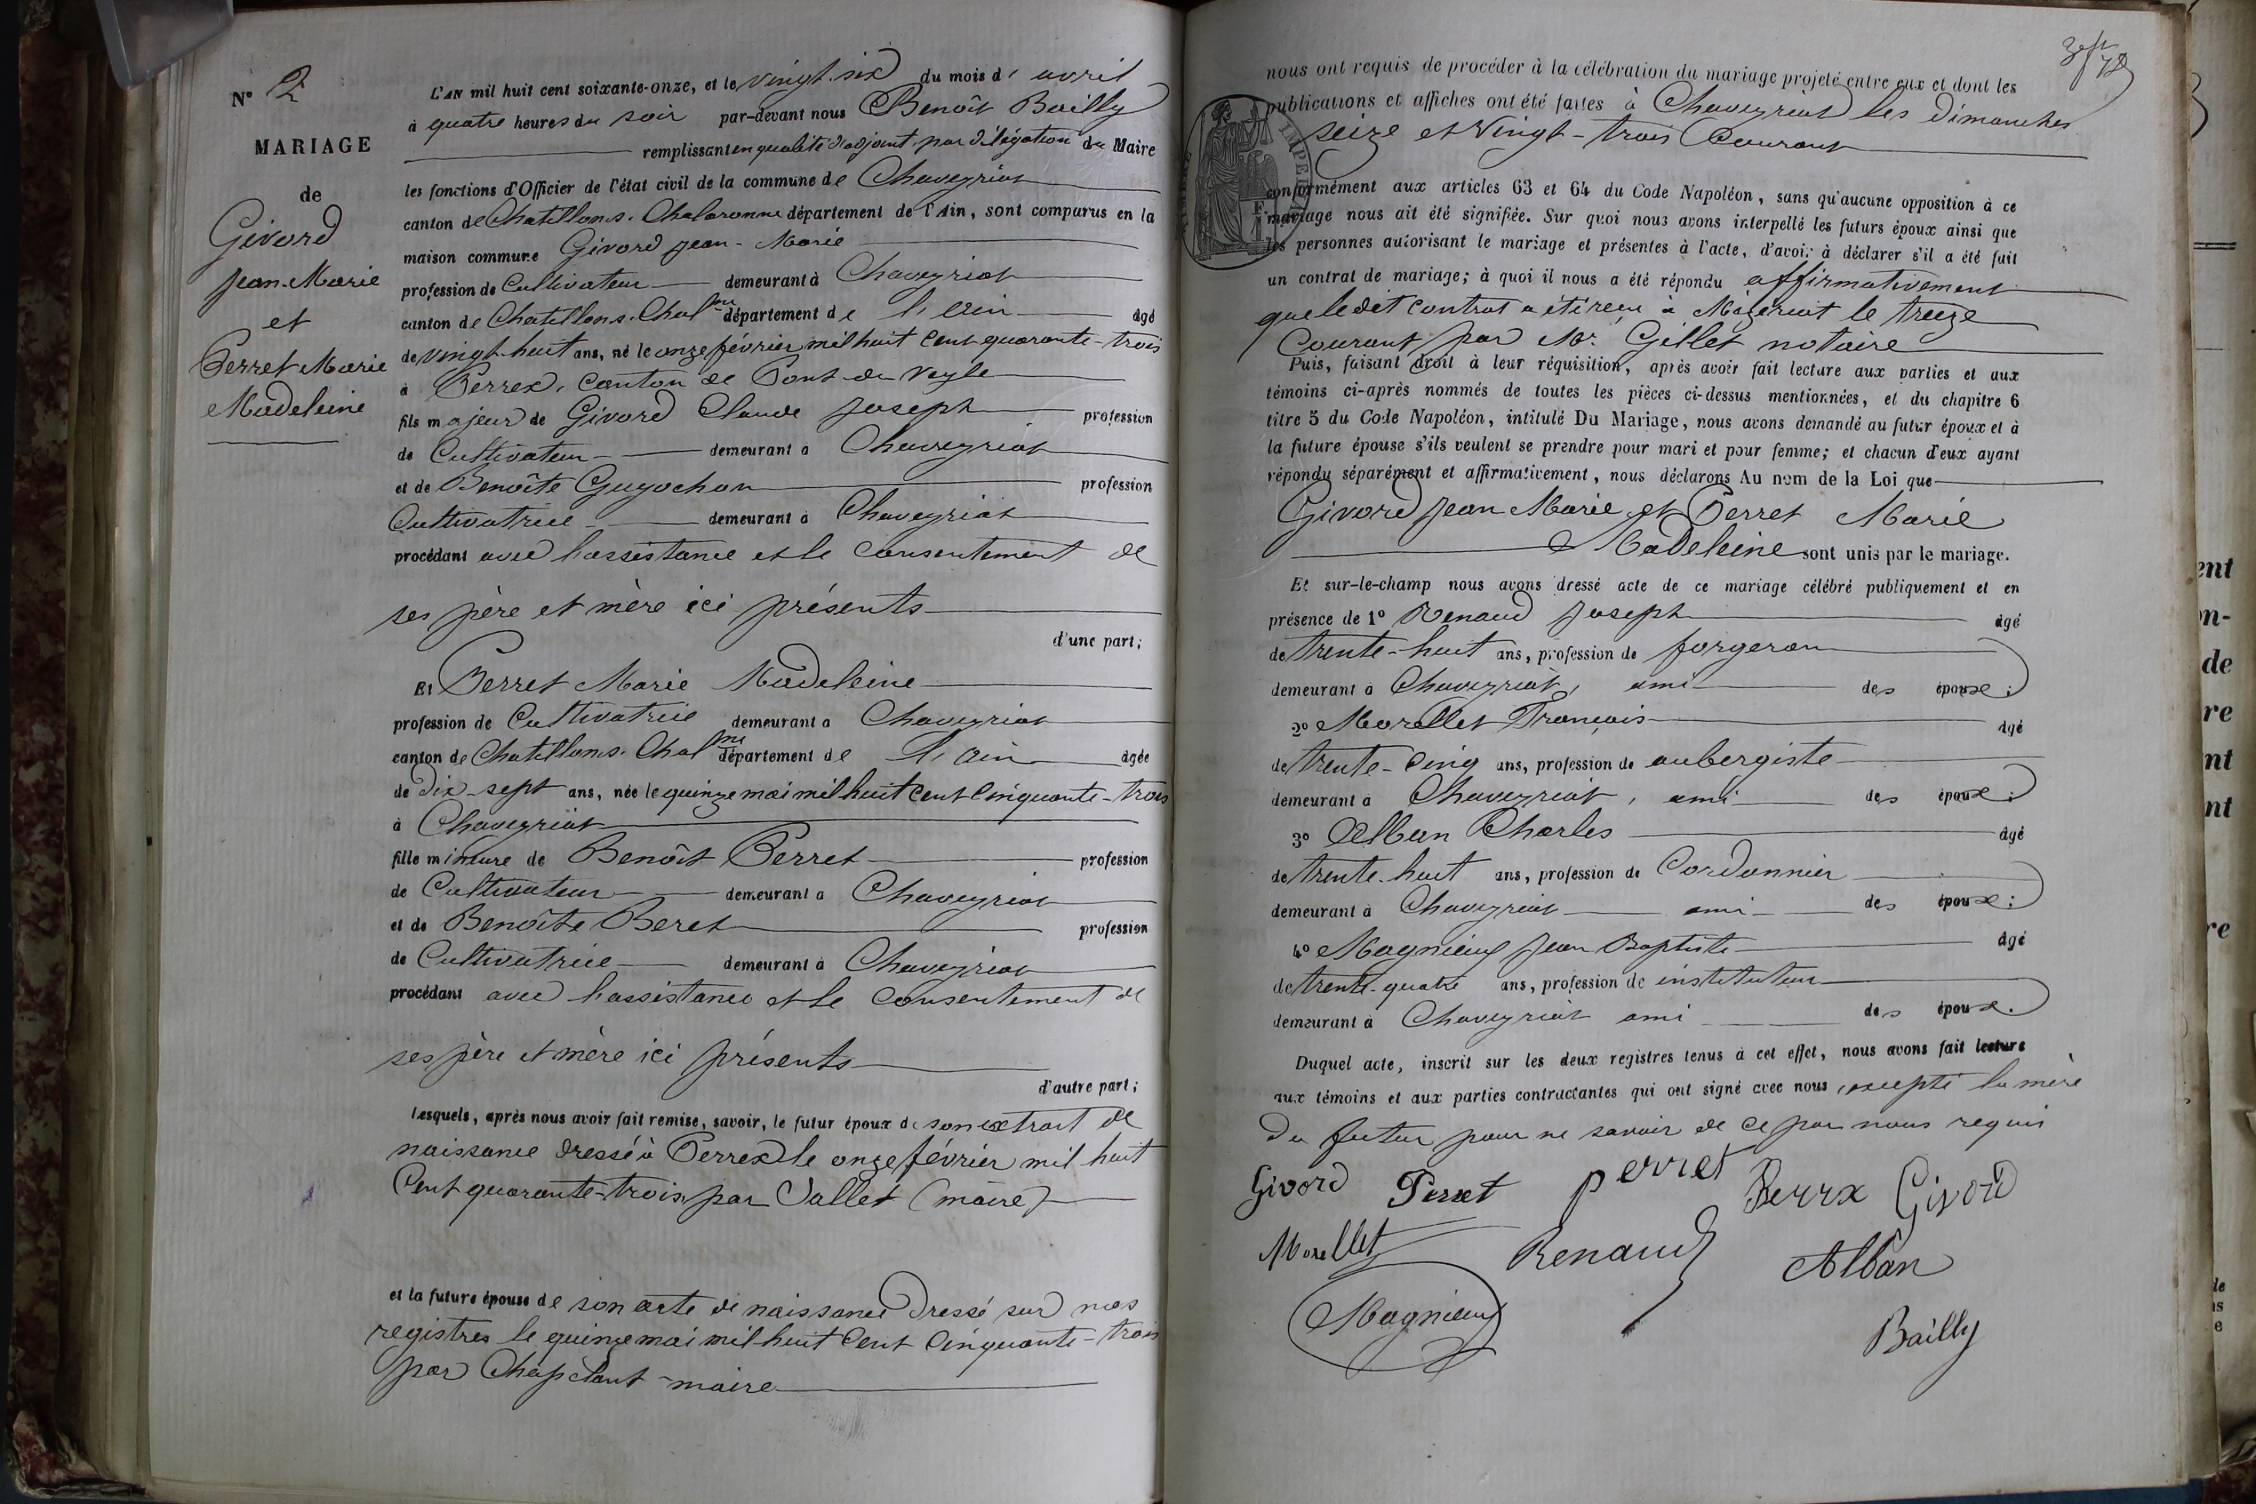 N° 2
MARIAGE
de
Givord
Jean-Marie
et
Perret Marie
Madeleine
L'AN mil huit cent soixante-onze, et le vingt-six du mois d' avril
à quatre heures du soir par-devant nous Benoît Bailly
remplissant en qualité d'adjoint, par délégation du Maire
les fonctions d'Officier de l'état civil de la commune de Chaveyriat
canton de Chatillon s. Chalaronne département de l'Ain, sont comparus en la
maison commune Givord Jean-Marie
profession de Cultivateur demeurant à Chaveyriat
canton de Chatillon s. Chalne département de l'Ain âgé
de vingt-huit ans, né le onze février mil huit cent quarante-trois
à Perrex, canton de Pont-de-Veyle
fils majeur de Givord Claude Joseph profession
de Cultivateur demeurant à Chaveyriat
et de Benoîte Guyochon profession
Cultivatrice demeurant à Chaveyriat
procédant avec l'assistance et le consentement de
ses père et mère ici présents
d'une part;
Et Perret Marie Madeleine
profession de Cultivatrice demeurant à Chaveyriat
canton de Chatillon s. Chalne département de l'Ain âgée
de dix-sept ans, née le quinze mai mil huit cent cinquante-trois
à Chaveyriat
fille mineure de Benoît Perret profession
de Cultivateur demeurant à Chaveyriat
et de Benoîte Beret profession
de Cultivatrice demeurant à Chaveyriat
procédant avec l'assistance et le consentement de
ses père et mère ici présents
d'autre part;
Lesquels, après nous avoir fait remise, savoir, le futur époux de son extrait de
naissance dressé à Perrex le onze février mil huit
cent quarante-trois par Vallet (maire)
et la future épouse de son acte de naissance dressé sur nos
registres le quinze mai mil huit cent cinquante-trois
par maire
nous ont requis de procéder à la célébration du mariage projeté entre eux et dont les
publications et affiches ont été faites à Chaveyriat les dimanches
seize et vingt-trois Courant
conformément aux articles 63 et 64 du Code Napoléon, sans qu'aucune opposition à ce
mariage nous ait été signifiée. Sur quoi nous avons interpellé les futurs époux ainsi que
les personnes autorisant le mariage et présentes à l'acte, d'avoir à déclarer s'il a été fait
un contrat de mariage; à quoi il nous a été répondu affirmativement
que ledit contrat a été reçu à Mézériat le treize
Courant par Mr. Gillet notaire
Puis, faisant droit à leur réquisition, après avoir fait lecture aux parties et aux
témoins ci-après nommés de toutes les pièces ci-dessus mentionnées, et du chapitre 6
titre 5 du Code Napoléon, intitulé Du Mariage, nous avons demandé au futur époux et à
la future épouse s'ils veulent se prendre pour mari et pour femme; et chacun d'eux ayant
répondu séparément et affirmativement, nous déclarons Au nom de la Loi que
Givord Jean Marie et Perret Marie
Madeleine sont unis par le mariage.
Et sur-le-champ nous avons dressé acte de ce mariage célébré publiquement et en
présence de 1° Renaud Joseph âgé
de trente-huit ans, profession de forgeron
demeurant à Chaveyriat, ami des époux;
2° Morellet François âgé
de trente-cinq ans, profession de aubergiste
demeurant à Chaveyriat, ami des époux;
3° Alban Charles âgé
de trente-huit ans, profession de Cordonnier
demeurant à Chaveyriat ami des époux;
4° Magnieux Jean Baptiste âgé
de trente-quatre ans, profession de instituteur
demeurant à Chaveyriat ami des époux.
Duquel acte, inscrit sur les deux registres tenus à cet effet, nous avons fait lecture
aux témoins et aux parties contractantes qui ont signé avec nous, excepté la mère
du futur pour ne savoir de ce par nous requis
Givord Perret perret Givord
Morellet Renaud Alban
Magnieux
Bailly